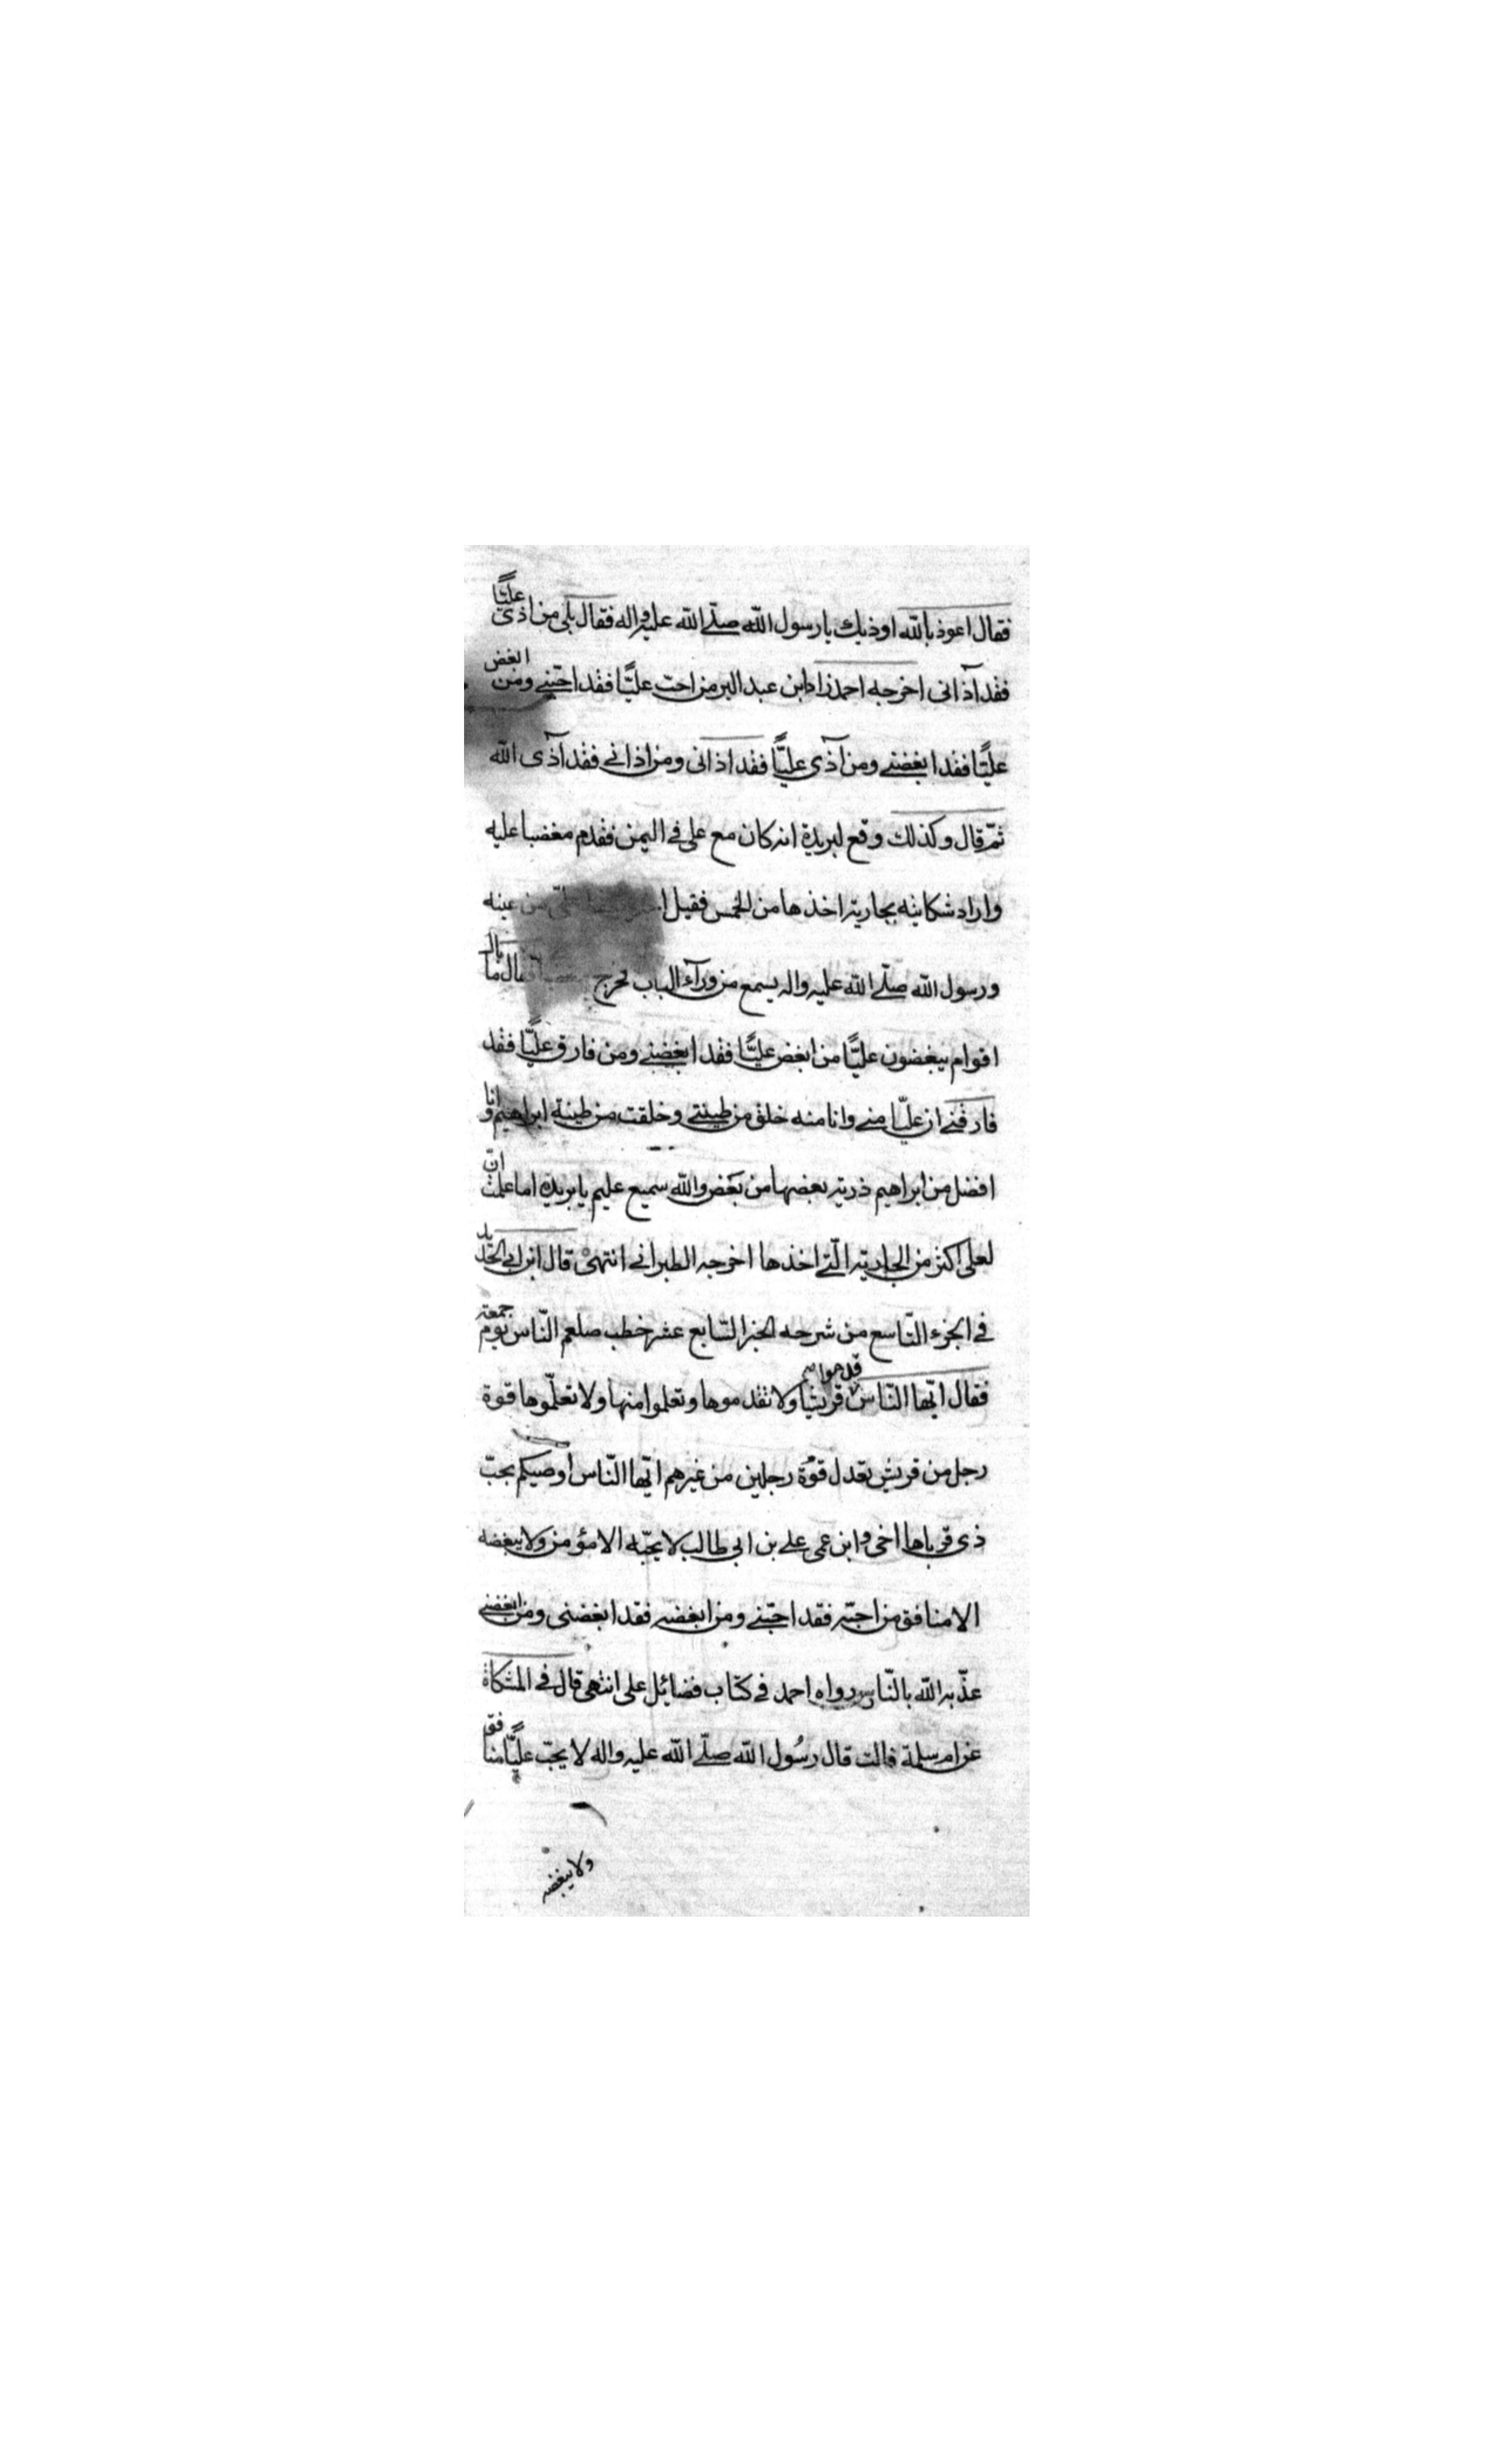 فقال اعوذ بالله اوذيك يا رسول الله صلّى الله عليه واله فقال بلى من اذى عليّاً
فقد آذانى اخرجه احمد زاد ابن عبد البر من احبّ عليّاً فقد احبّنى ومن ابغض
عليّاً فقد ابغضنى ومن آذى عليّاً فقد اذانى ومن اذانى فقد آذى الله
ثمّ قال وكذلك وقع لبريدة انه كان مع على فى اليمن فقدم مغضبا عليه
واراد شكايته بجارية اخذها من الخمس فقيل من عينه
ورسول الله صلّى الله عليه واله يسمع من ورآء الباب فخرج فقال ما بال
اقوام يبغضون عليّاً من ابغض عليّاً فقد ابغضنى ومن فارق عليّاً فقد
فارقنى ان عليّا منى وانا منه خلق من طينتى وخلقت من طينة ابراهيم وانا
افضل من ابراهيم ذرية بعضها من بعض والله سميع عليم يا بريدة اما علمت انّ
لعلى اكثر من الجارية الّتى اخذها اخرجه الطبرانى انتهى قال ابن ابى الحديد
فى الجزء التّاسع من شرحه الخبر السّابع عشر خطب صلعم النّاس يوم جمعة
فقال ايّها النّاس قدموا قريشا ولا تقدموها وتعلموا منها ولا تعلّموها قوة
رجل من قريش تعدل قوّة رجلين من غيرهم ايّها النّاس اوصيكم بحبّ
ذى قرباها اخى وابن عمى على بن ابى طالب لا يحبّه الا مؤمن ولا يبغضه
الا منافق من احبّه فقد احبّنى ومن ابغضه فقد ابغضنى ومن ابغضنى
عذّبه الله بالنّار رواه احمد فى كتاب فضائل على انتهى قال فى المشكاة
عن ام سلمة قالت قال رسُول الله صلّى الله عليه واله لا يحبّ عليّاً منافق
ولا يبغضه